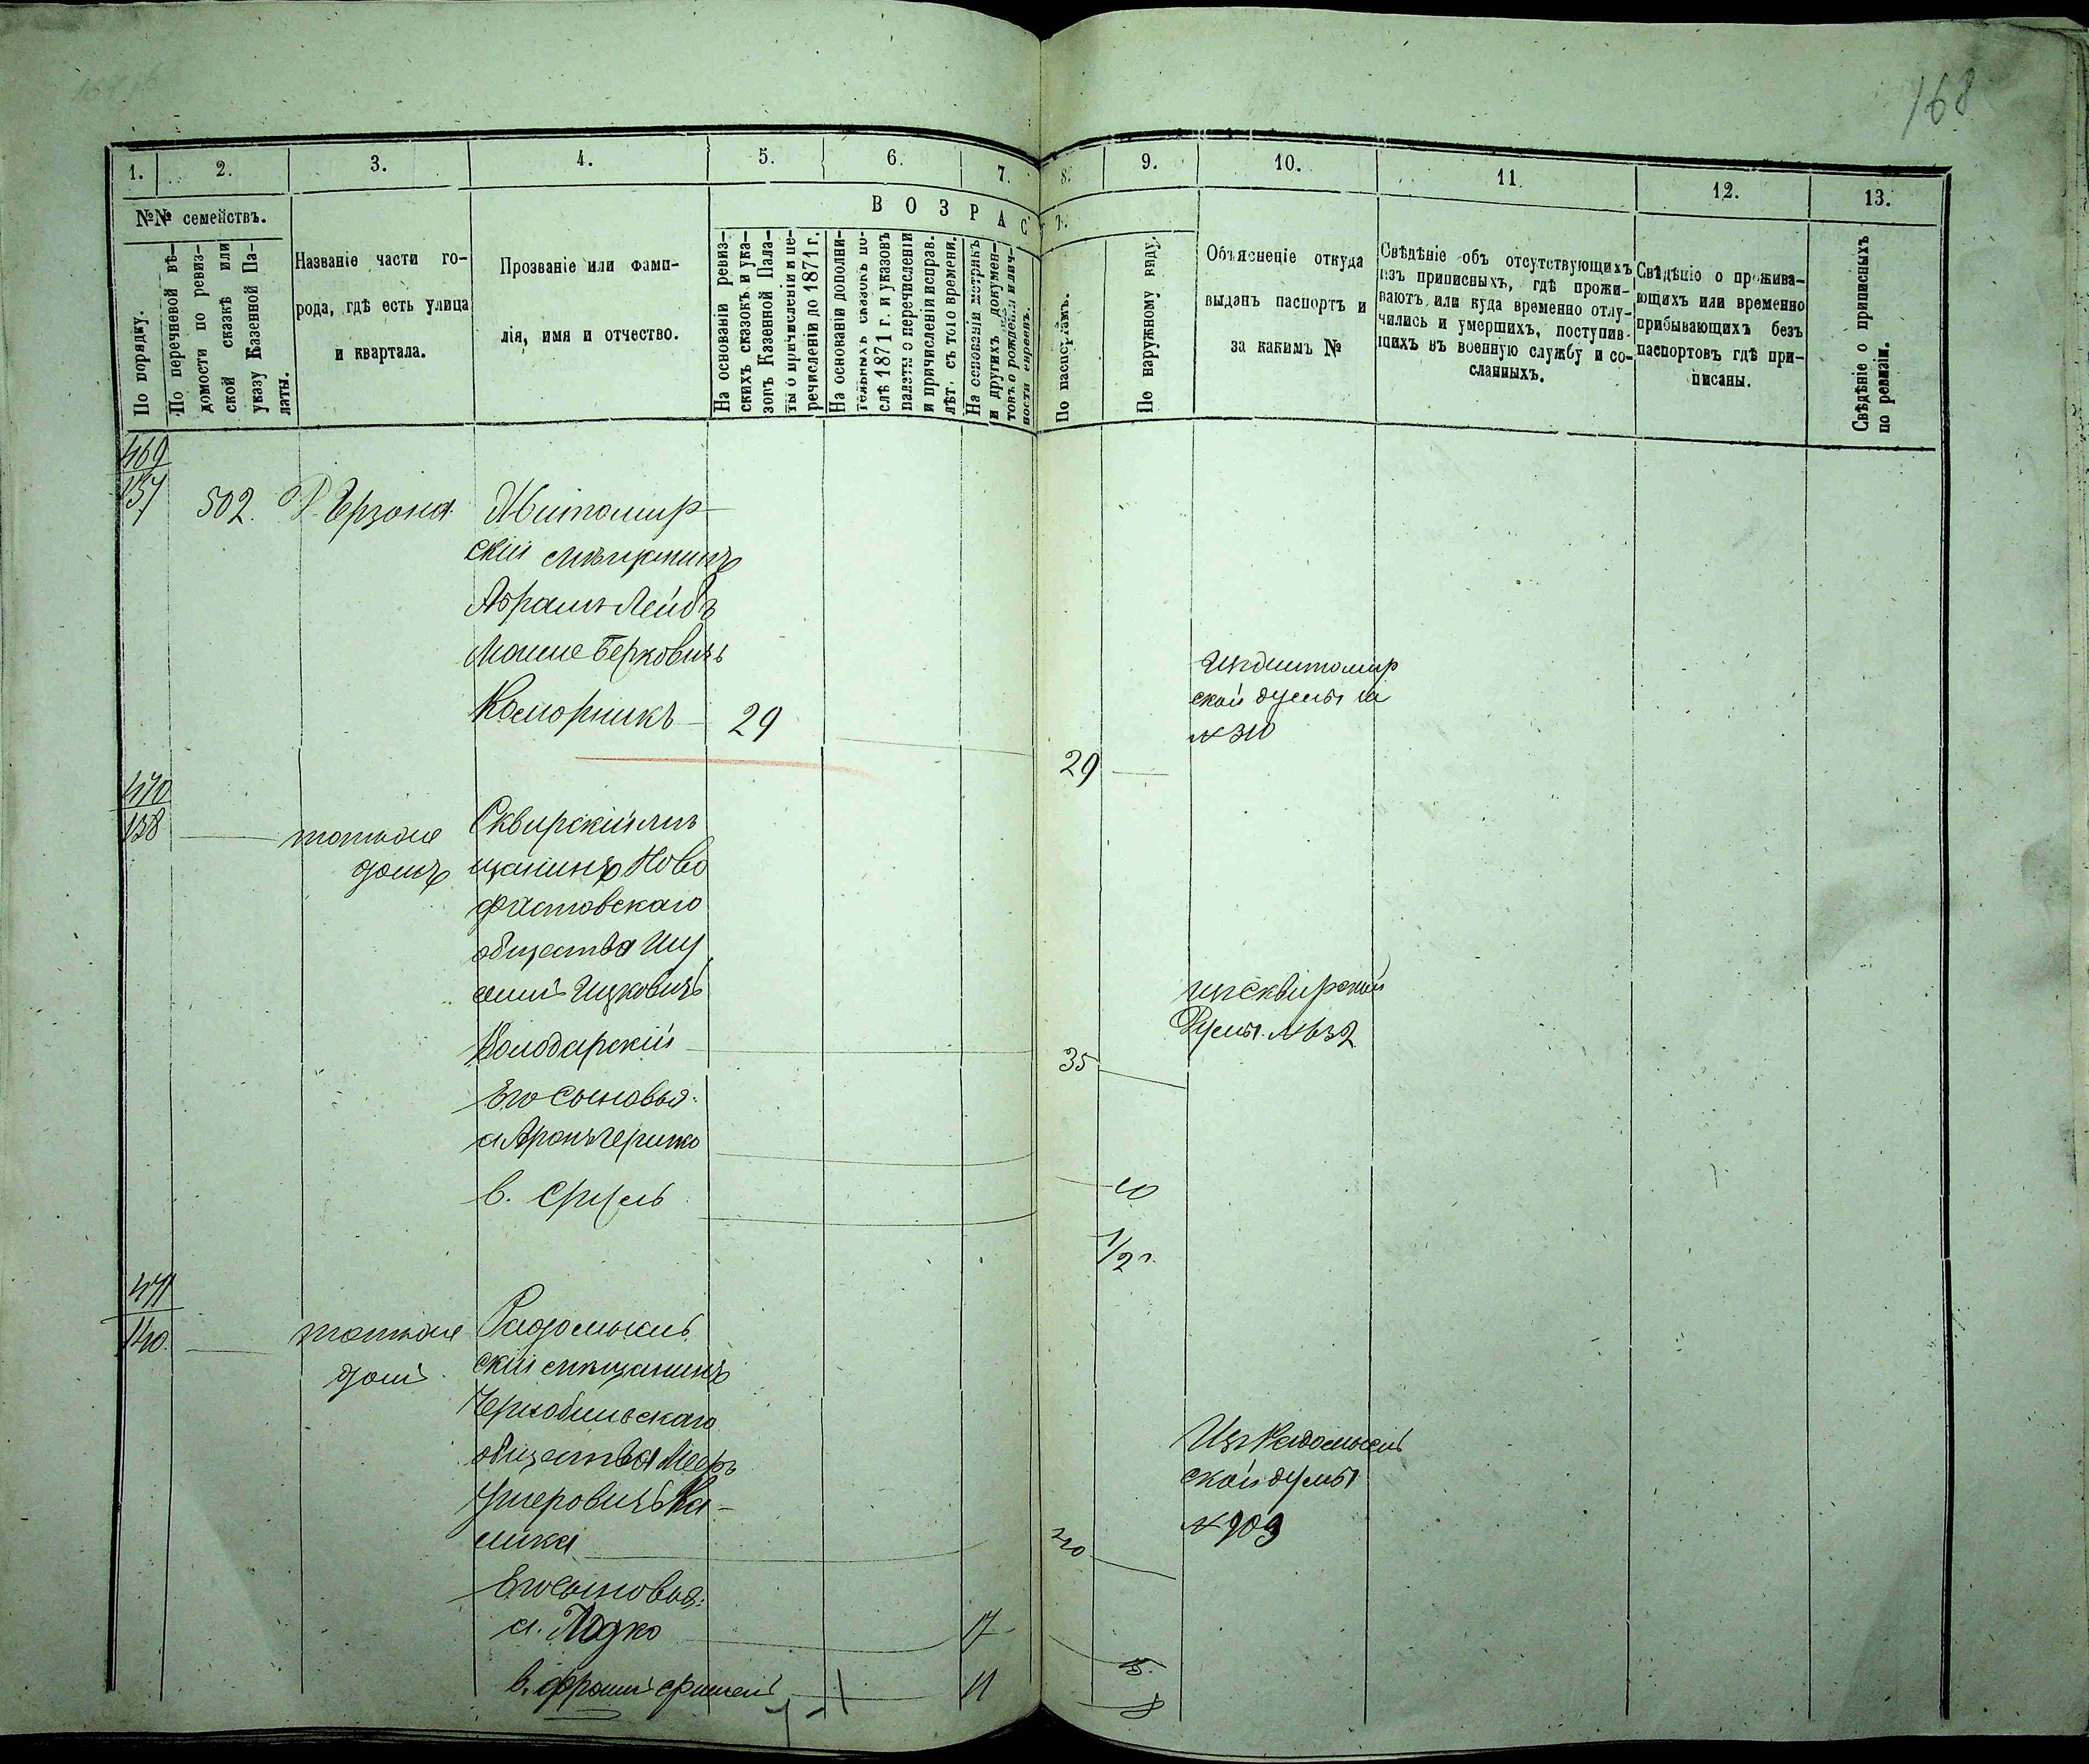 168
1.
2.
3.
4.
5.
6.
7.
8.
9.
10.
11.
12.
13.
№№ семействъ.
По порядку.
По перечневой вѣ-
домости по ревиз-
ской сказкѣ или
указу Казенной Па-
латы.
Названіе части го-
рода, гдѣ есть улица
и квартала.
Прозваніе или фами-
лія, имя и отчество.
ВОЗРАСТ.
На основаніи ревиз-
скихъ сказокъ и ука-
зовъ Казенной Пала-
ты о причисленіи и пе-
речисленіи до 1871 г.
На основаніи дополни-
тельныхъ сказокъ по-
слѣ 1871 г. и указовъ
палаты о перечисленіи
и причисленіи исправ.
лѣт. съ того времени.
На основаніи метрикъ
и другихъ докумен-
товъ о рожденіи и лич-
ности евреевъ.
По паспортамъ.
По наружному виду.
Объясненіе откуда
выданъ паспортъ и
за какимъ №
Свѣдѣніе объ отсутствующихъ
изъ приписныхъ, гдѣ прожи-
ваютъ или куда временно отлу-
чились и умершихъ, поступив-
шихъ въ военную службу и со-
сланныхъ.
Свѣдѣніе о прожива-
ющихъ или временно
прибывающихъ безъ
паспортовъ гдѣ при-
писаны.
Свѣдѣніе о приписныхъ
по ревизіи.
469
137 502. Житомир-
скій мѣщанинъ
Абрамъ Лейбъ
Мошие Берковичъ
29
Изъ житомир
ской думы за
№ 310
29
470
138
томъ же
домѣ
Сквирскій мѣ
щанинъ Ново
фастовскаго
общества
Ицковичъ
Володарскій
35
изъ Сквирской
Думы. № 632
Его сыновья:
а Аронъ Гершко
10
в. Сруль
1/2 г.
471
140.
томъ же
домѣ
Радомысль
скій мѣщанинъ
Чернобыльскаго
общества Мееръ
40
Изъ Радомысль
ской думы
№ 909
Его сыновья:
а. Іодко
17
15.
в.
11
8